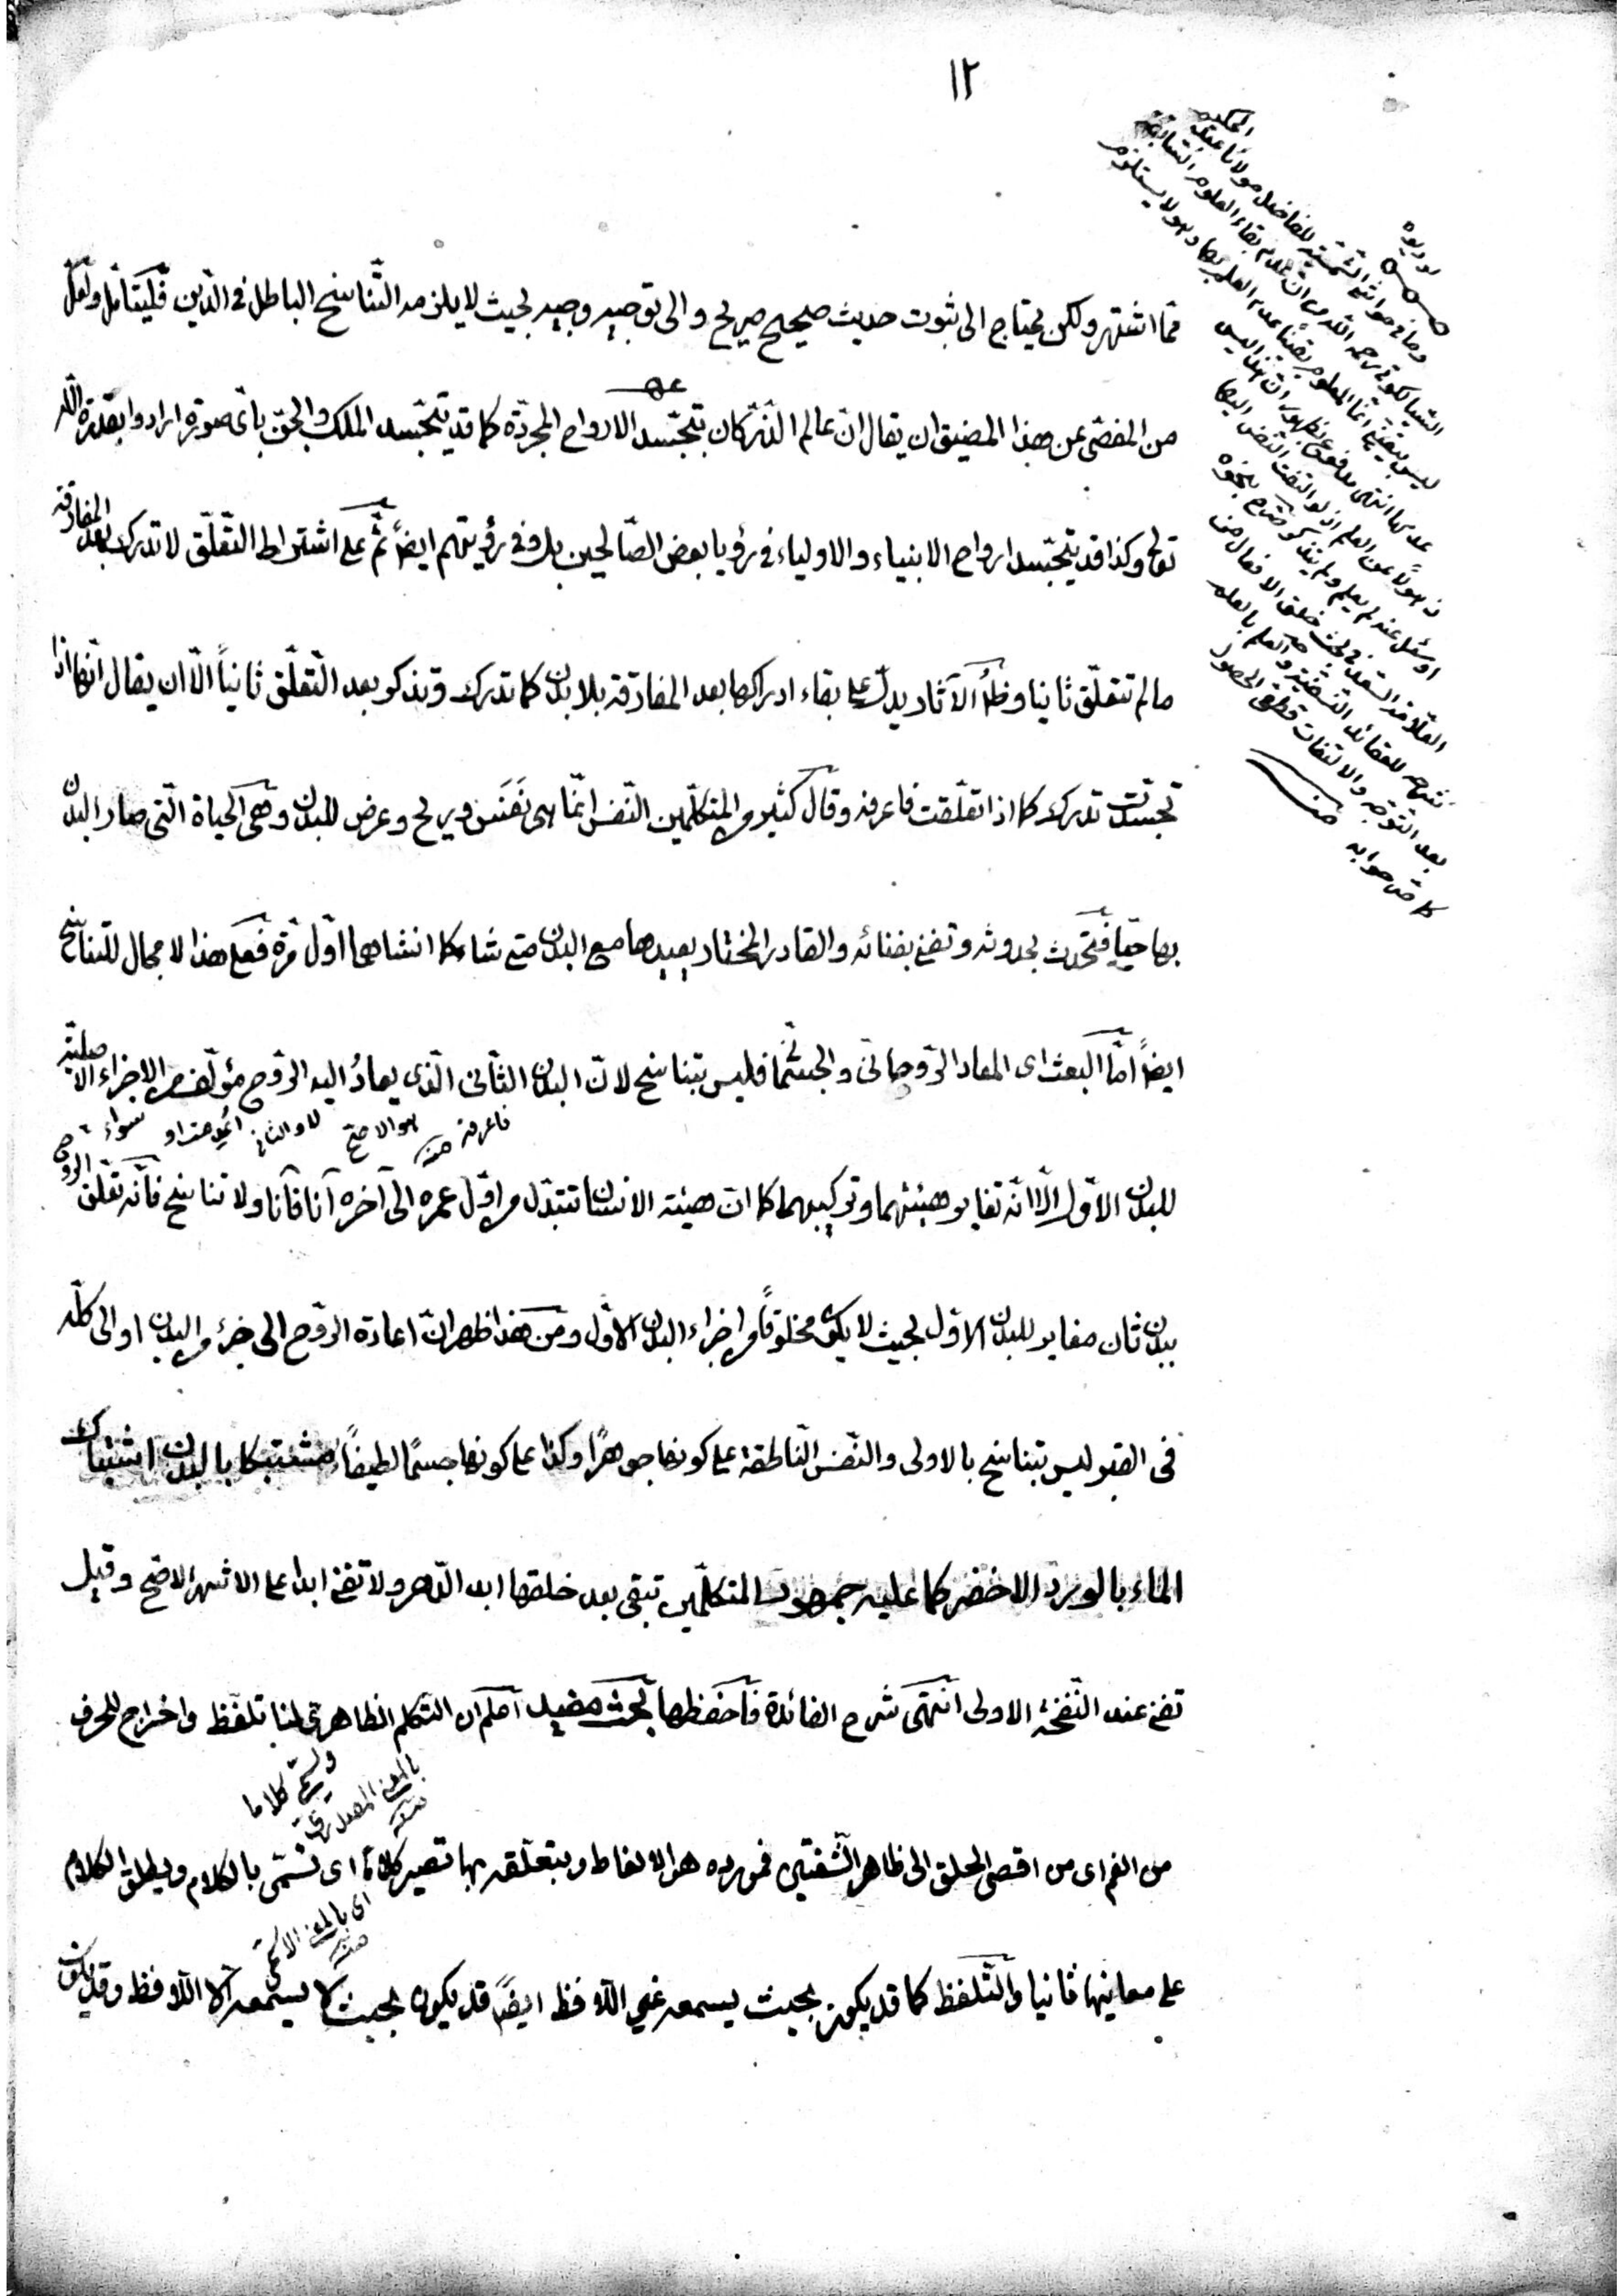 ١٢
فما اشتهر ولكن يحتاج الى ثبوت حديث صحيح صريح والى توجيه وجيه بحيث لا يلزمه التناسخ الباطل فى الدّين فليتأمّل ولعلّ
من المفصّى عن هذا المضيق ان يقال انّ عالم الذّرّ كان بتجسّد الارواح المجرّدة كما قد يتجسّد الملك والجنّ باىّ صورة ارادوا بقدرة الله
تعالى وكذا قد يتجسّد ارواح الانبياء والاولياء فى رؤيا بعض الصّالحين بل وفى رؤيتهم ايضاً ثمّ على اشتراط التّعلّق لا تدرك بعد المفارقة
ما لم تتعلّق ثانيا وظ الآثار يدلّ على بقاء ادراكها بعد المفارقة بلا بدن كما تدرك وتذكر بعد التّعلّق ثانياً الّا ان يقال انّها اذا
تجسّدت تدرك كما اذا تعلّقت فاعرفه وقال كثير من المتكلّمين النّفس انّما هى نَفَس وريح وعرض للبدن وهى الحياة الّتى صار البدن
بها حيّا فتحدث بحدوثه وتفنى بفنائه والقادر المختار يعيدها مع البدن متى شاء كما انشاهما اوّل مرّة فعلى هذا لا مجال للتّناسخ
ايضاً امّا البعث اى المعاد الرّوحانّى والجسمانّى فليس بتناسخ لانّ البدن الثّانى الّذى يعادُ اليه الرّوح مؤلّف من الاجزاء الاصليّة
سواء
فاعرفه منه
هو الاصحّ
للبدن الاوّل الّا انّه تغاير هيئتهما وتركيبهما كما انّ هيئة الانسان تتبدّل من اوّل عمره الى آخره آنا فآنا ولا تناسخ فانّه تعلّق الروح
ببدن ثان مغاير للبدن الاوّل بحيث لا يكون مخلوقاً من اجزاء البدن الاوّل ومن هذا ظهر انّ اعادة الرّوح الى جزء من البدن او الى كلّه
فى القبر ليس بتناسخ بالاولى والنّفس النّاطقة على كونها جوهرًا وكذا على كونها جسمًا لطيفاً مشتبكا بالبدن اشتباك
الماء بالورد الاخضر كما عليه جمهور المتكلّمين تبقى بعد خلقها ابد الدّهر ولا تفنى ابدا على الاشهر الاصّح وقيل
تفنى عند النّفخة الاولى انتهى شرح الفائدة فاحفظها بحث مفيد اعلم ان التّكلم الظاهرىّ لنا تلفّظ واخراج للحرف
ويسمّى كلاما
بالمعنى المصدرىّ
منه
من الفم اى من اقصى الحلق الى ظاهر الشّفتين فمورده هو الالفاظ وبتعلّقه بها تصير كلاما اى تسمّى بالكلام ويطلق الكلام
اى بالمعنى الاسمىّ
منه
على معانيها ثانيا والتّلفظ كما قد يكون بحيث يسمعه غير اللّافظ ايضاً قد يكون بحيث لا يسمعه الّا اللّافظ وقد يكون
وما فى حواشى الشّمسيّة للفاضل مولانا عبد الحكيم
السّيالكوتى رحمه الله من انّ عدم بقاء العلوم السّابقة
ليس بيقينىّ انّما المعلوم يقينًا عدم العلم بها وهو لا يستلزم
عدمها انتهى مدفوع بظهور انّ هذا ليس
ذهولًا عن العلم اذ لو التفت النّفس اليها
او سئل عنه لم يعلم ولم يتذكر صرّح بنحوه
العلّامة السّعد فى بحث خلق الافعال من
شرحه للعقائد النّسفيّة والعلم بالعلم
بعد التّوجّه والالتفات قطعى الحصول
كما مرّ جوابه منه